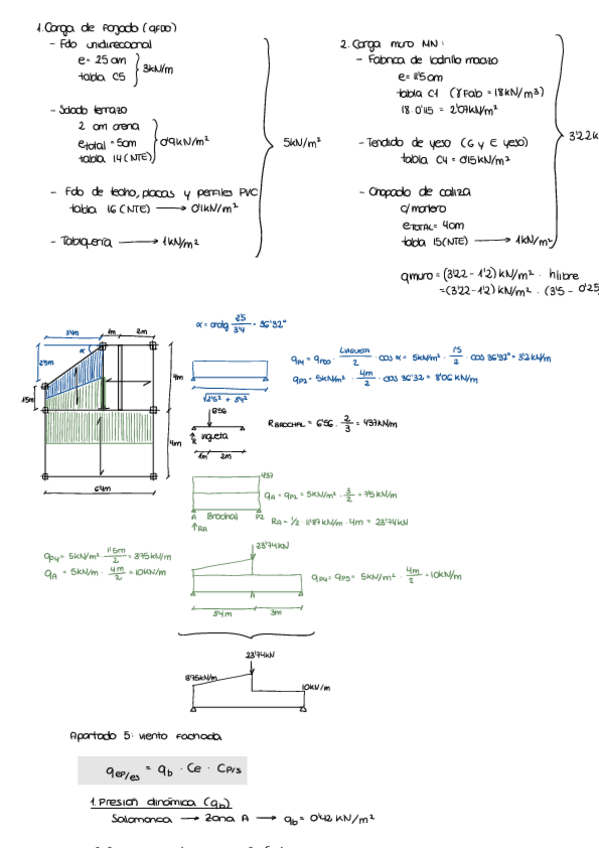 1. Carga de forjado (qFDO)
- Fdo unidireccional
e = 25 cm
tabla C5
3kN/m
- Solado terrazo
2 cm arena
etotal = 5cm
tabla 14 (NTE)
0'9kN/m²
5kN/m²
- Fdo de techo, placas y perfiles PVC
tabla 16 (NTE) → 0'1kN/m²
- Tabiquería → 1kN/m²
2. Carga muro MN:
- Fabrica de ladrillo macizo
e = 11'5cm
tabla C1 (γFab = 18kN/m³)
18 · 0'115 = 2'07kN/m²
- Tendido de yeso (G y E yeso)
tabla C4 = 0'15kN/m²
3'22k
- Chapado de caliza
c/mortero
eTOTAL = 4cm
tabla 15(NTE) → 1kN/m²
qmuro = (3'22 - 1'2) kN/m² · hlibre
= (3'22 - 1'2) kN/m² · (3'5 - 0'25
3'4m 1m 2m
α
2'5m
1'5m
4m
4m
6'4m
α = arctg 2'5/3'4 = 36'32°
√2'5² + 3'4²
cos α = 5kN/m² · 1'5/2 · cos 36'32° = 3'2 kN/m
qP2 = 5kN/m² · 4m/2 · cos 36'32 = 8'06 KN/m
6'56
R
vigueta
1m 2m
RBROCHAL = 6'56 · 2/3 = 4'37kN/m
4'37
A Brochal P2
↑RA
qA = qP2 = 5kN/m² · 3/2 = 7'5 kN/m
RA = 1/2 · 11'87 kN/m · 4m = 23'74kN
qP4 = 5kN/m² · 1'5m/2 = 3'75kN/m
qA = 5kN/m · 4m/2 = 10kN/m
23'74kN
qP4 = qP5 = 5kN/m² · 4m/2 = 10kN/m
A
3'4m 3m
23'74kN
10kN/m
Apartado 5: viento fachada
qep/es = qb · Ce · Cp/s
1. Presión dinámica (qb)
Salamanca → Zona A → qb = 0'42 KN/m²